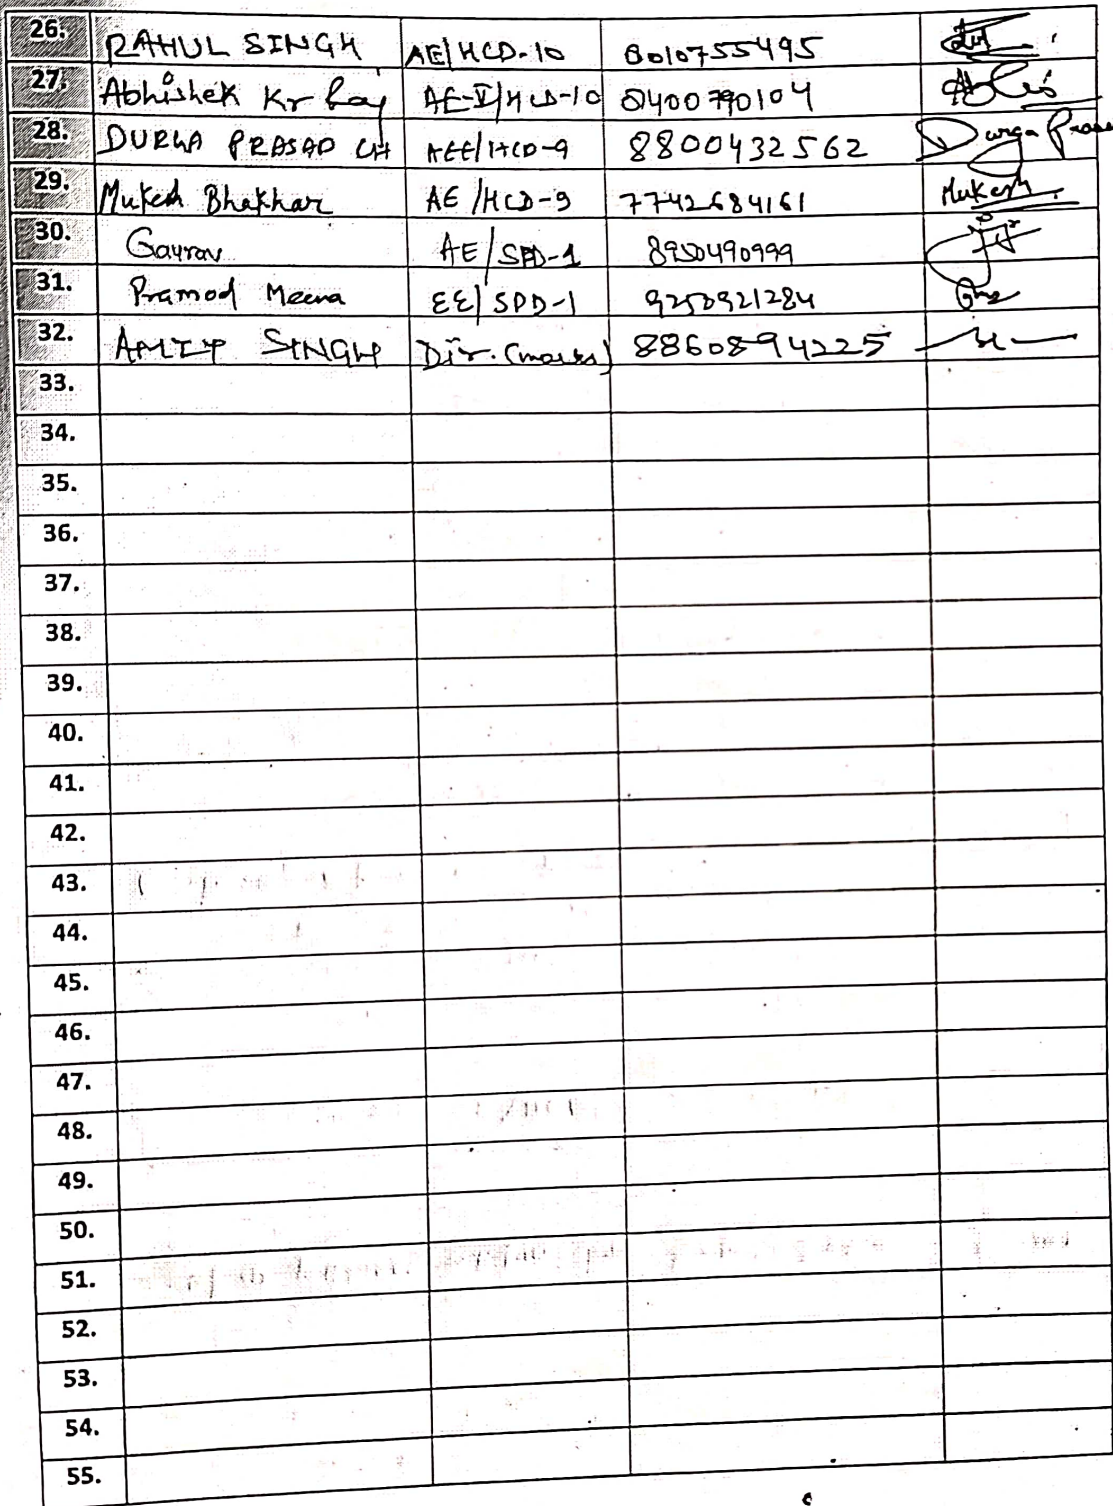 26. RAHUL SINGH AE/HCD-10 8010755495
27. Abhishek Kr Raj AE-I/HCD-10 8400790104 Abhis
28. DURGA PRASAD CH AEE/HCD-9 8800432562 Durga Prasa
29. Mukesh Bhakhar AE/HCD-9 7742684161 Mukesh
30. Gaurav AE/SPD-1 8950490999
31. Pramod Meena EE/SPD-1 9250921284
32. AMIT SINGH Dir. 8860894225
33.
34.
35.
36.
37.
38.
39.
40.
41.
42.
43.
44.
45.
46.
47.
48.
49.
50.
51.
52.
53.
54.
55.